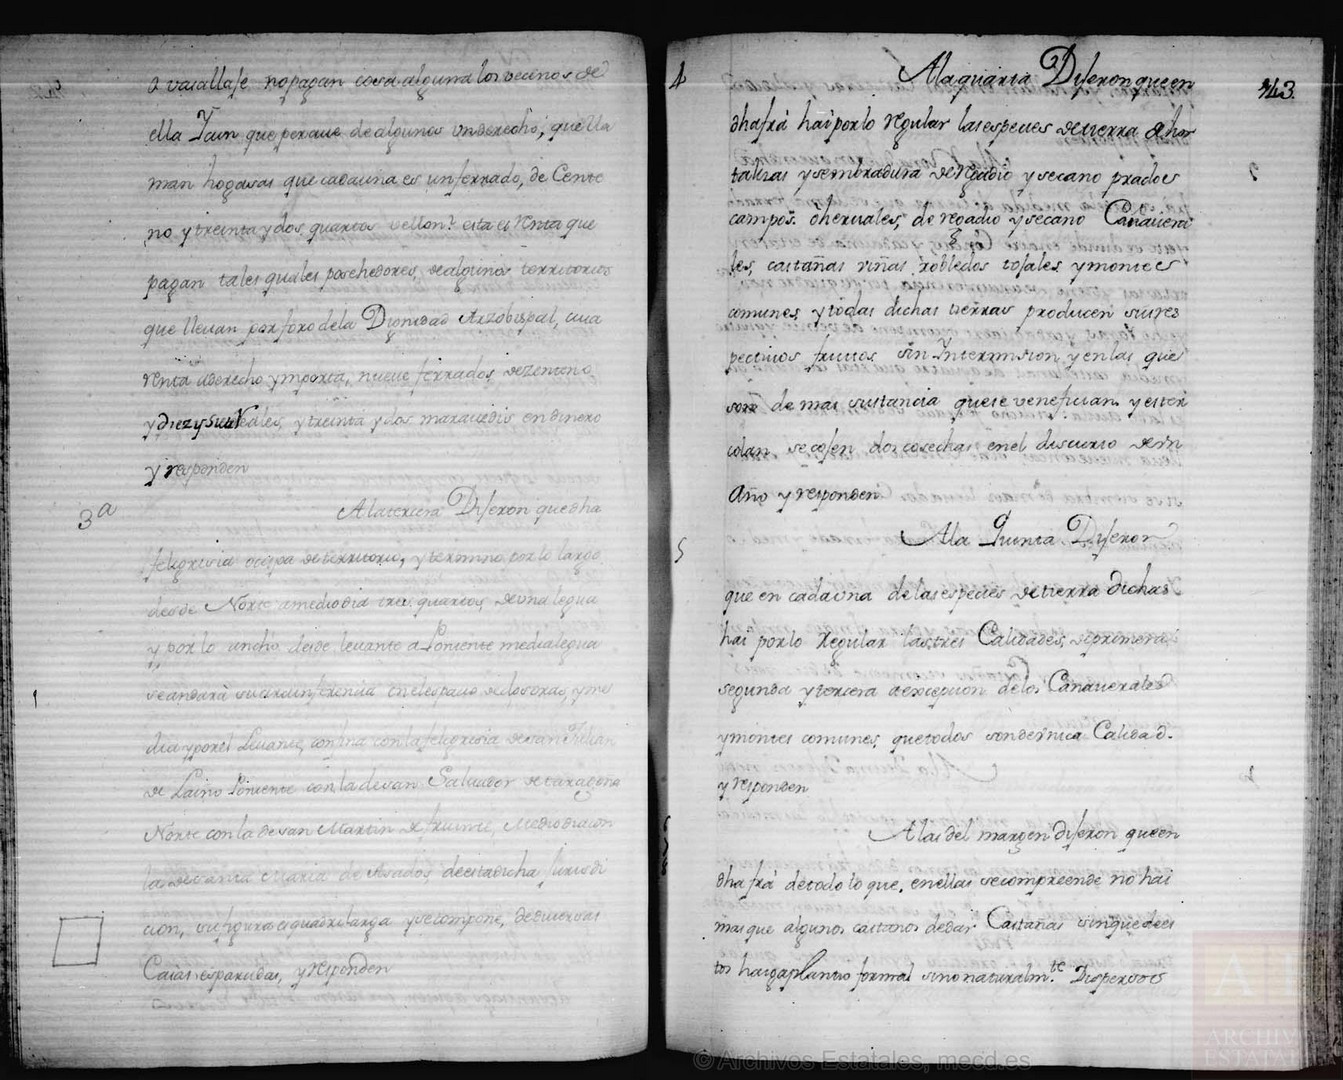 o vasallaje no pagan cosa alguna los vecinos de
ella Y aun que perciue de algunos un derecho, que lla
man hogasas que cada una es un ferrado, de Cente
no, y treinta y dos, quartos vellon. esta es renta que
pagan tales quales posehedores, de algunos territorios
que lleuan por foro de la Dignidad Arzobispal, cuia
renta o derecho ymporta, nueue ferrados, de zenteno
y diez y siete Reales, y treinta y dos marauedis en dinero
y responden
3ª
A la tercera Dijeron que dha
feligresia ocupa de territorio, y termino, por lo largo
desde Norte a medio dia tres quartos, de una legua
y por lo ancho, desde leuante a Poniente media legua
se andará su circunferencia en el espacio de dos oras, y me
dia y por el Leuante, confina con la feligresia de san Julian
de Laiño Poniente con la de san Saluador de taragoña
Norte con la de san Martin de fruime, Mediodia con
la de santa Maria de Asados de esta dicha Jurisdi
cion, su figura es quadrilarga y se compone, de diuersas
Casas esparcidas, y responden
4
A la quarta Dijeron que en
343.
dha frâ hai por lo regular las especies de tierra de hor
talizas y sembradura de regadio y secano prados
campos. de heruales, de regadio y secano Cañauera
les, castañas viñas robledos tojales y montes
comunes, y todas dichas tierras producen sus res
pectiuos fructos sin Yntermision y en las que
son de mas sustancia que se venefician y ester
colan se cojen dos cosechas en el discurso de un
Año y responden
5
A la Quinta Dijeron
que en cada una de las especies de tierra dichas
hai por lo Regular las tres Calidades, de primera,
segunda y tercera a excepcion de los Cañauerales
y montes comunes, que todos son de vnica Calidad.
y responden
A las del margen dijeron que en
dha frâ de todo lo que, en ellas se compreende no hai
mas que algunos castaños de dar Castañas sin que de es
tos haiga plantio formal sino naturalm.te Dispersos
© Archivos Estatales, mecd.es